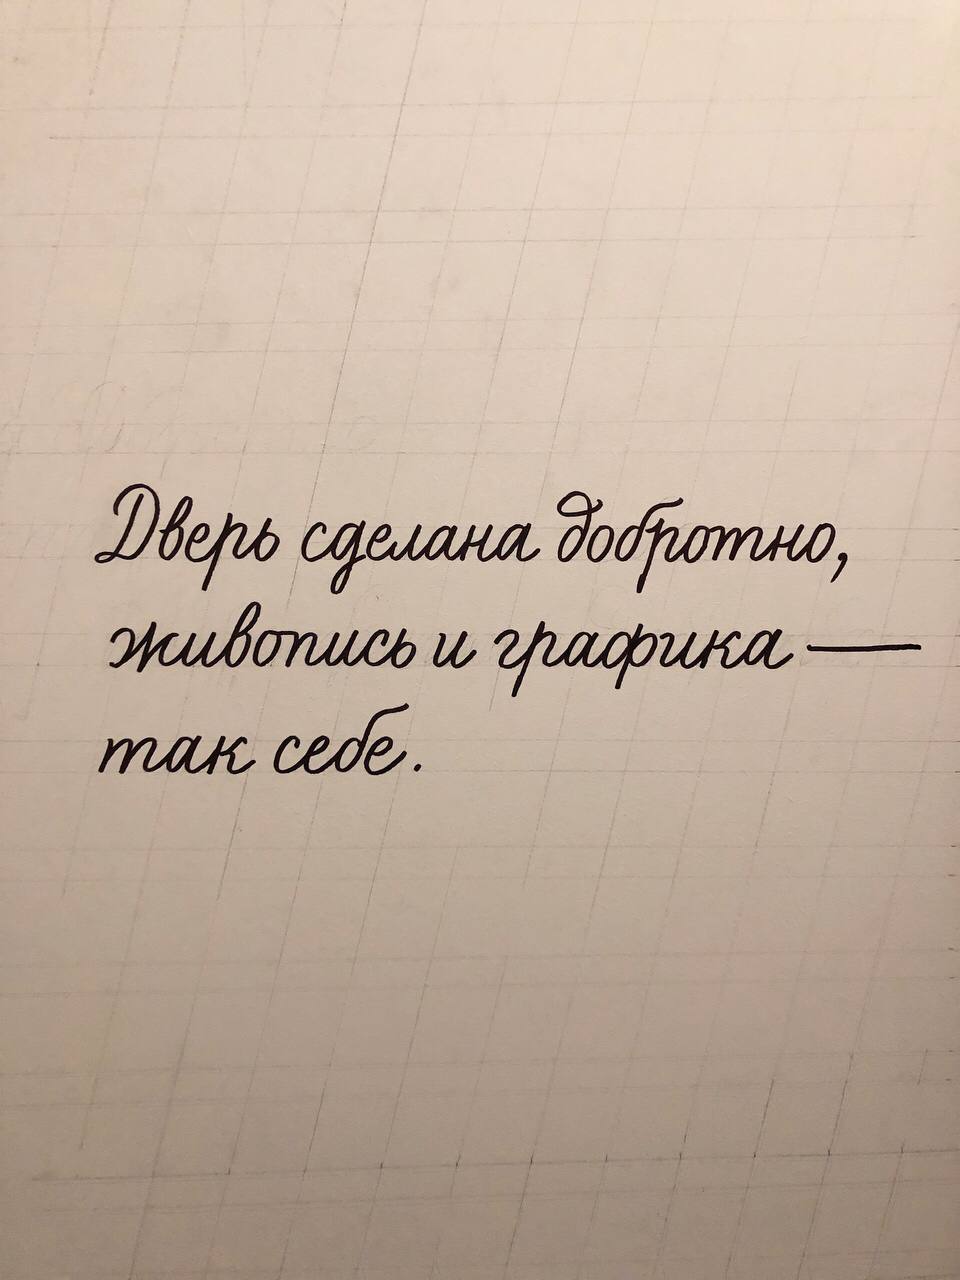 Дверь сделана добротно,
живопись и графика —
так себе.